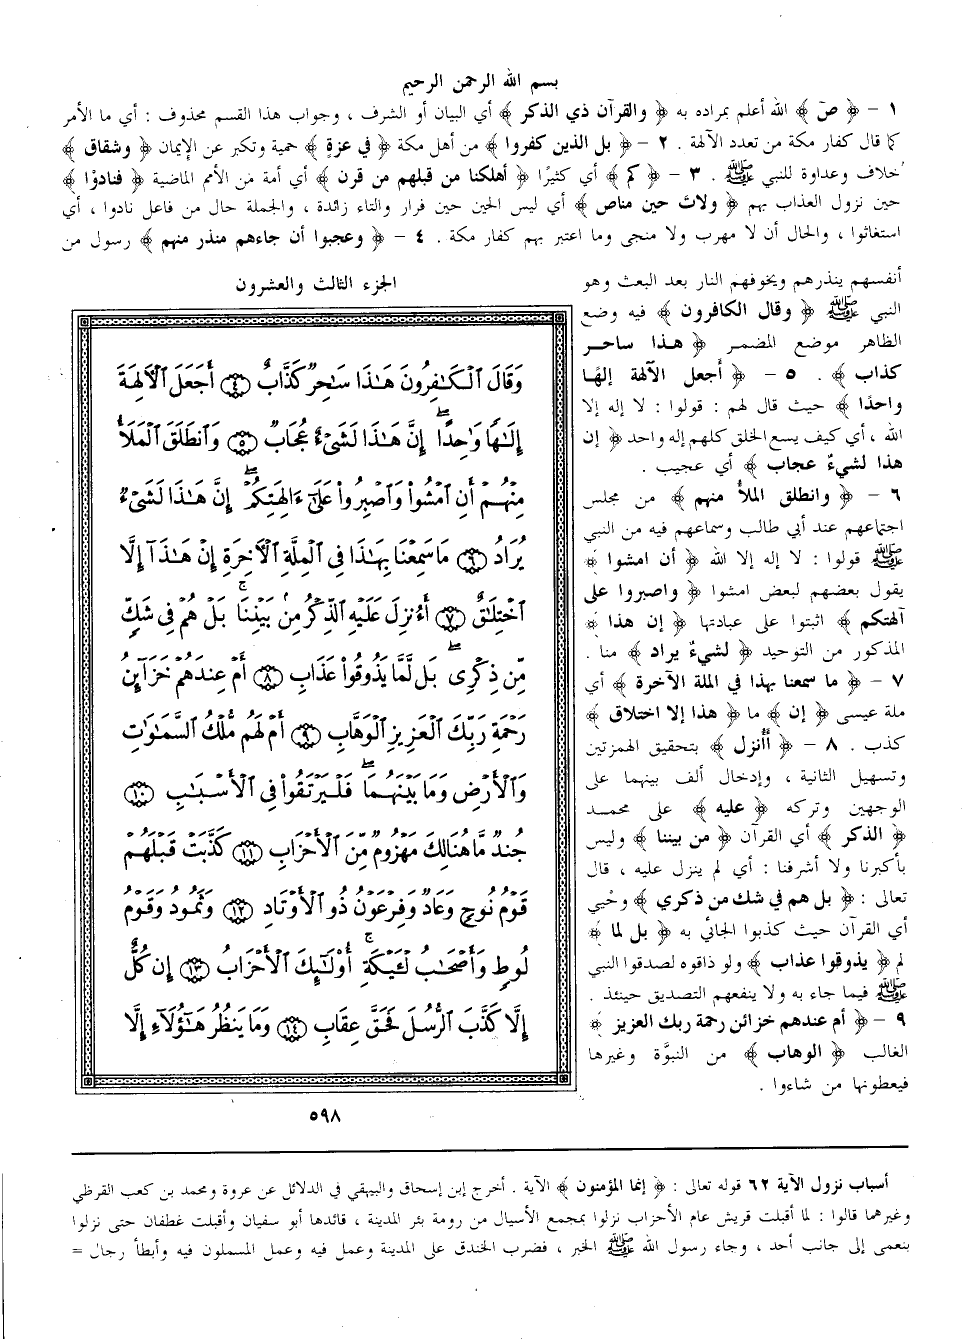 بسم الله الرحمن الرحيم
١ - ﴿ صٓ ﴾ الله أعلم بمراده به ﴿ والقرآن ذي الذكر ﴾ أي البيان أو الشرف ، وجواب هذا القسم محذوف : أي ما الأمر
كما قال كفار مكة من تعدد الآلهة . ٢ - ﴿ بل الذين كفروا ﴾ من أهل مكة ﴿ في عزةٍ ﴾ حمية وتكبر عن الإيمان ﴿ وشقاق ﴾
خلاف وعداوة للنبي ﷺ . ٣ - ﴿ كم ﴾ أي كثيرًا ﴿ أهلكنا من قبلهم من قرن ﴾ أي أمة من الأمم الماضية ﴿ فنادوْا ﴾
حين نزول العذاب بهم ﴿ ولاتَ حين مناص ﴾ أي ليس الحين حين فرار والتاء زائدة ، والجملة حال من فاعل نادوا ، أي
استغاثوا ، والحال أن لا مهرب ولا منجى وما اعتبر بهم كفار مكة . ٤ - ﴿ وعجبوا أن جاءهم منذر منهم ﴾ رسول من
أنفسهم ينذرهم ويخوفهم النار بعد البعث وهو
النبي ﷺ ﴿ وقال الكافرون ﴾ فيه وضع
الظاهر موضع المضمر ﴿ هـذا ساحـر
كذاب ﴾ . ٥ - ﴿ أجعل الآلهة إلهًا
واحدًا ﴾ حيث قال لهم : قولوا : لا إله إلا
الله ، أي كيف يسع الخلق كلهم إله واحد ﴿ إن
هذا لشيءٌ عجاب ﴾ أي عجيب .
٦ - ﴿ وانطلق الملأ منهم ﴾ من مجلس
اجتماعهم عند أبي طالب وسماعهم فيه من النبي
ﷺ قولوا : لا إله إلا الله ﴿ أن امشوا ﴾
يقول بعضهم لبعض امشوا ﴿ واصبروا على
آلهتكم ﴾ اثبتوا على عبادتها ﴿ إن هذا ﴾
المذكور من التوحيد ﴿ لشيءٌ يراد ﴾ منا .
٧ - ﴿ ما سمعنا بهذا في الملة الآخرة ﴾ أي
ملة عيسى ﴿ إن ﴾ ما ﴿ هذا إلا اختلاق ﴾
كذب . ٨ - ﴿ أأُنزل ﴾ بتحقيق الهمزتين
وتسهيل الثانية ، وإدخال ألف بينهما على
الوجهين وتركه ﴿ عليه ﴾ على محمـد
﴿ الذكر ﴾ أي القرآن ﴿ من بيننا ﴾ وليس
بأكبرنا ولا أشرفنا : أي لم ينزل عليه ، قال
تعالى : ﴿ بل هم في شك من ذكري ﴾ وحْيي
أي القرآن حيث كذبوا الجائي به ﴿ بل لما ﴾
لم ﴿ يذوقوا عذاب ﴾ ولو ذاقوه لصدقوا النبي
ﷺ فيما جاء به ولا ينفعهم التصديق حينئذ .
٩ - ﴿ أم عندهم خزائن رحمة ربك العزيز ﴾
الغالب ﴿ الوهاب ﴾ من النبوَّة وغيرها
فيعطونها من شاءوا .
الجزء الثالث والعشرون
وَقَالَ ٱلْكَٰفِرُونَ هَٰذَا سَٰحِرٌ كَذَّابٌ ۝٤ أَجَعَلَ ٱلْآلِهَةَ
إِلَٰهًا وَٰحِدًا ۖ إِنَّ هَٰذَا لَشَىْءٌ عُجَابٌ ۝٥ وَٱنطَلَقَ ٱلْمَلَأُ
مِنْهُمْ أَنِ ٱمْشُوا۟ وَٱصْبِرُوا۟ عَلَىٰٓ ءَالِهَتِكُمْ ۖ إِنَّ هَٰذَا لَشَىْءٌ
يُرَادُ ۝٦ مَا سَمِعْنَا بِهَٰذَا فِى ٱلْمِلَّةِ ٱلْآخِرَةِ إِنْ هَٰذَآ إِلَّا
ٱخْتِلَٰقٌ ۝٧ أَءُنزِلَ عَلَيْهِ ٱلذِّكْرُ مِنۢ بَيْنِنَا ۚ بَلْ هُمْ فِى شَكٍّ
مِّن ذِكْرِى ۖ بَل لَّمَّا يَذُوقُوا۟ عَذَابِ ۝٨ أَمْ عِندَهُمْ خَزَآئِنُ
رَحْمَةِ رَبِّكَ ٱلْعَزِيزِ ٱلْوَهَّابِ ۝٩ أَمْ لَهُم مُّلْكُ ٱلسَّمَٰوَٰتِ
وَٱلْأَرْضِ وَمَا بَيْنَهُمَا ۖ فَلْيَرْتَقُوا۟ فِى ٱلْأَسْبَٰبِ ۝١٠
جُندٌ مَّا هُنَالِكَ مَهْزُومٌ مِّنَ ٱلْأَحْزَابِ ۝١١ كَذَّبَتْ قَبْلَهُمْ
قَوْمُ نُوحٍ وَعَادٌ وَفِرْعَوْنُ ذُو ٱلْأَوْتَادِ ۝١٢ وَثَمُودُ وَقَوْمُ
لُوطٍ وَأَصْحَٰبُ لْـَٔيْكَةِ ۚ أُو۟لَٰٓئِكَ ٱلْأَحْزَابُ ۝١٣ إِن كُلٌّ
إِلَّا كَذَّبَ ٱلرُّسُلَ فَحَقَّ عِقَابِ ۝١٤ وَمَا يَنظُرُ هَٰٓؤُلَآءِ إِلَّا
٥٩٨
أسباب نزول الآية ٦٢ قوله تعالى : ﴿ إنما المؤمنون ﴾ الآية . أخرج إبن إسحاق والبيهقي في الدلائل عن عروة ومحمد بن كعب القرظي
وغيرهما قالوا : لما أقبلت قريش عام الأحزاب نزلوا بمجمع الأسيال من رومة بئر المدينة ، قائدها أبو سفيان وأقبلت غطفان حتى نزلوا
بنعمى إلى جانب أحد ، وجاء رسول الله ﷺ الخبر ، فضرب الخندق على المدينة وعمل فيه وعمل المسلمون فيه وأبطأ رجال =